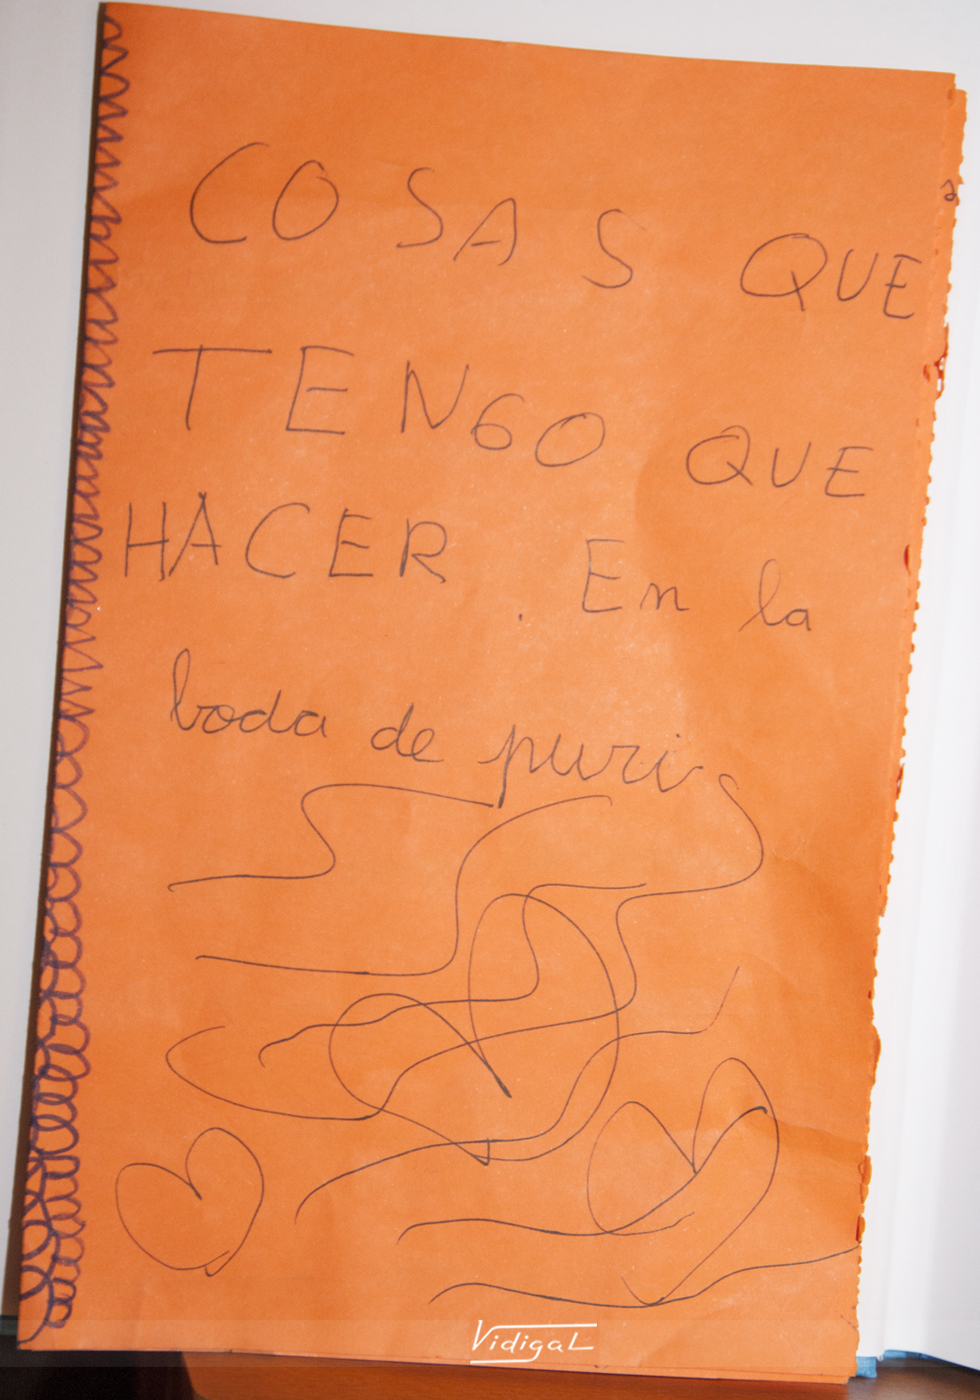 COSAS QUE
TENGO QUE
HACER. En la
boda de puri
Vidigal